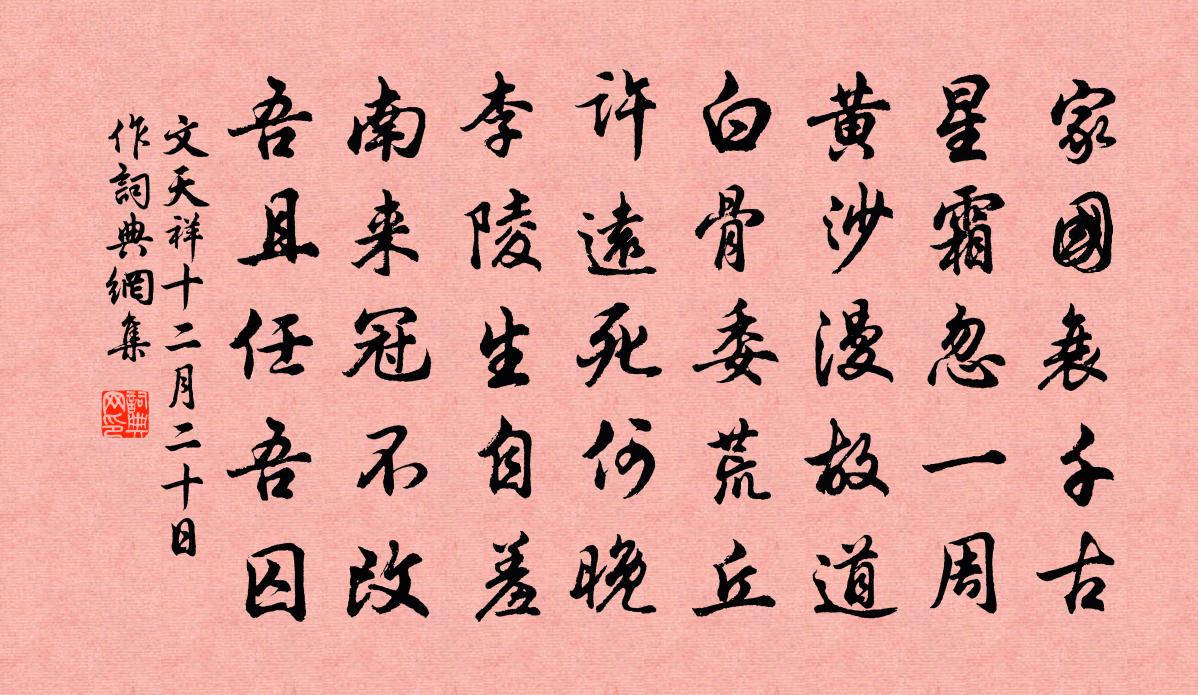 家國喪千古
星霜忽一周
黃沙漫故道
白骨委荒丘
許遠死何晚
李陵生自羞
南来冠不改
吾且任吾囚
文天祥十二月二十日
作詞典網集
詞典网印